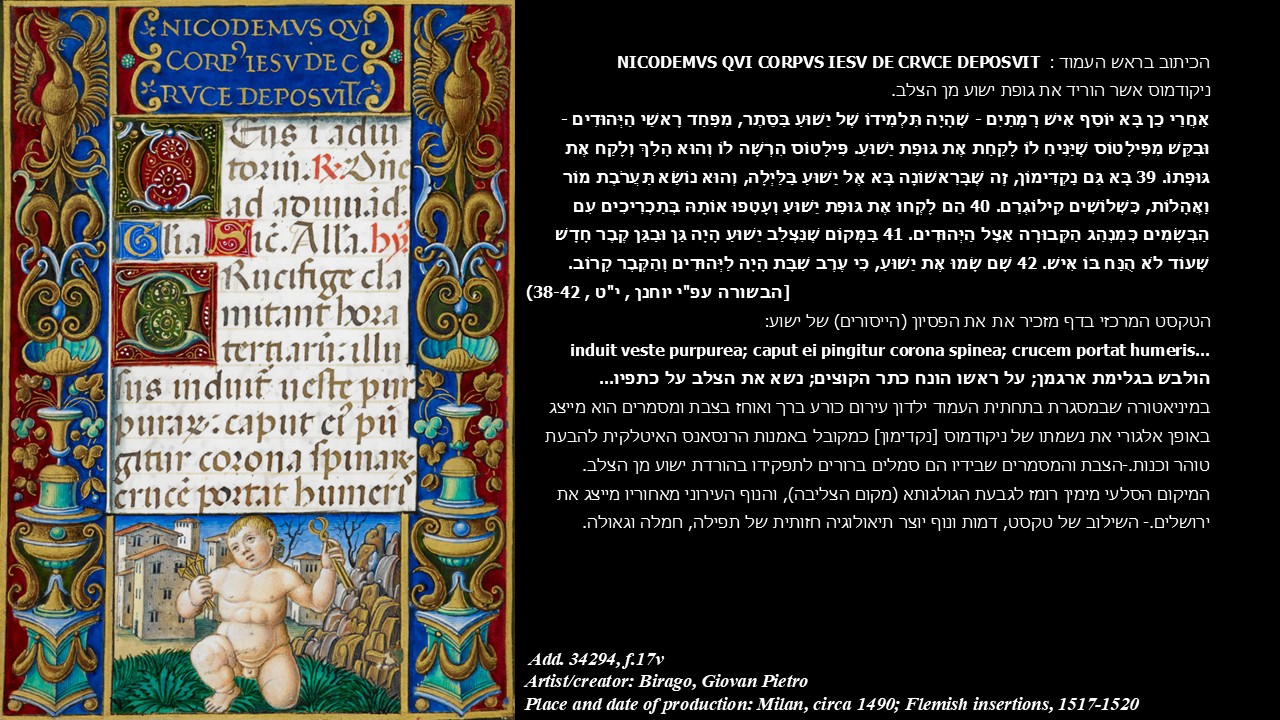 NICODEMVS QVI
CORPꝰ IESV DE C
RVCE DEPOSVIT
Eus i adiu
toriū. R. Dñe
ad adiuuād.
Glia Sic̄. Alła. hỹ
CRucifige cla
mitant hora
tertiarū: illu
sus induit̄ ueste pur
puraꝝ: caput eī pū
gitur corona spinaꝝ
crucē portat humeri
הכיתוב בראש העמוד : NICODEMVS QVI CORPVS IESV DE CRVCE DEPOSVIT
ניקודמוס אשר הוריד את גופת ישוע מן הצלב.
אַחֲרֵי כֵן בָּא יוֹסֵף אִישׁ רָמָתַיִם - שֶׁהָיָה תַּלְמִידוֹ שֶׁל יֵשׁוּעַ בַּסֵּתֶר, מִפַּחַד רָאשֵׁי הַיְּהוּדִים -
וּבִקֵּשׁ מִפִּילָטוֹס שֶׁיַּנִּיחַ לוֹ לָקַחַת אֶת גּוּפַת יֵשׁוּעַ. פִּילָטוֹס הִרְשָׁה לוֹ וְהוּא הָלַךְ וְלָקַח אֶת
גּוּפָתוֹ. 39 בָּא גַּם נַקְדִּימוֹן, זֶה שֶׁבָּרִאשׁוֹנָה בָּא אֶל יֵשׁוּעַ בַּלַּיְלָה, וְהוּא נוֹשֵׂא תַּעֲרֹבֶת מוֹר
וַאֲהָלוֹת, כִּשְׁלוֹשִׁים קִילוֹגְרַם. 40 הֵם לָקְחוּ אֶת גּוּפַת יֵשׁוּעַ וְעָטְפוּ אוֹתָהּ בְּתַכְרִיכִים עִם
הַבְּשָׂמִים כְּמִנְהַג הַקְּבוּרָה אֵצֶל הַיְּהוּדִים. 41 בַּמָּקוֹם שֶׁנִּצְלַב יֵשׁוּעַ הָיָה גַּן וּבַגַּן קֶבֶר חָדָשׁ
שֶׁעוֹד לֹא הֻנַּח בּוֹ אִישׁ. 42 שָׁם שָׂמוּ אֶת יֵשׁוּעַ, כִּי עֶרֶב שַׁבָּת הָיָה לַיְּהוּדִים וְהַקֶּבֶר קָרוֹב.
[הבשורה עפ"י יוחנן , י"ט , 38-42)
הטקסט המרכזי בדף מזכיר את את הפסיון (הייסורים) של ישוע:
induit veste purpurea; caput ei pingitur corona spinea; crucem portat humeris...
הולבש בגלימת ארגמן; על ראשו הונח כתר הקוצים; נשא את הצלב על כתפיו...
במיניאטורה שבמסגרת בתחתית העמוד ילדון עירום כורע ברך ואוחז בצבת ומסמרים הוא מייצג
באופן אלגורי את נשמתו של ניקודמוס [נקדימון] כמקובל באמנות הרנסאנס האיטלקית להבעת
טוהר וכנות.-הצבת והמסמרים שבידיו הם סמלים ברורים לתפקידו בהורדת ישוע מן הצלב.
המיקום הסלעי מימין רומז לגבעת הגולגותא (מקום הצליבה), והנוף העירוני מאחוריו מייצג את
ירושלים.- השילוב של טקסט, דמות ונוף יוצר תיאולוגיה חזותית של תפילה, חמלה וגאולה.
Add. 34294, f.17v
Artist/creator: Birago, Giovan Pietro
Place and date of production: Milan, circa 1490; Flemish insertions, 1517-1520